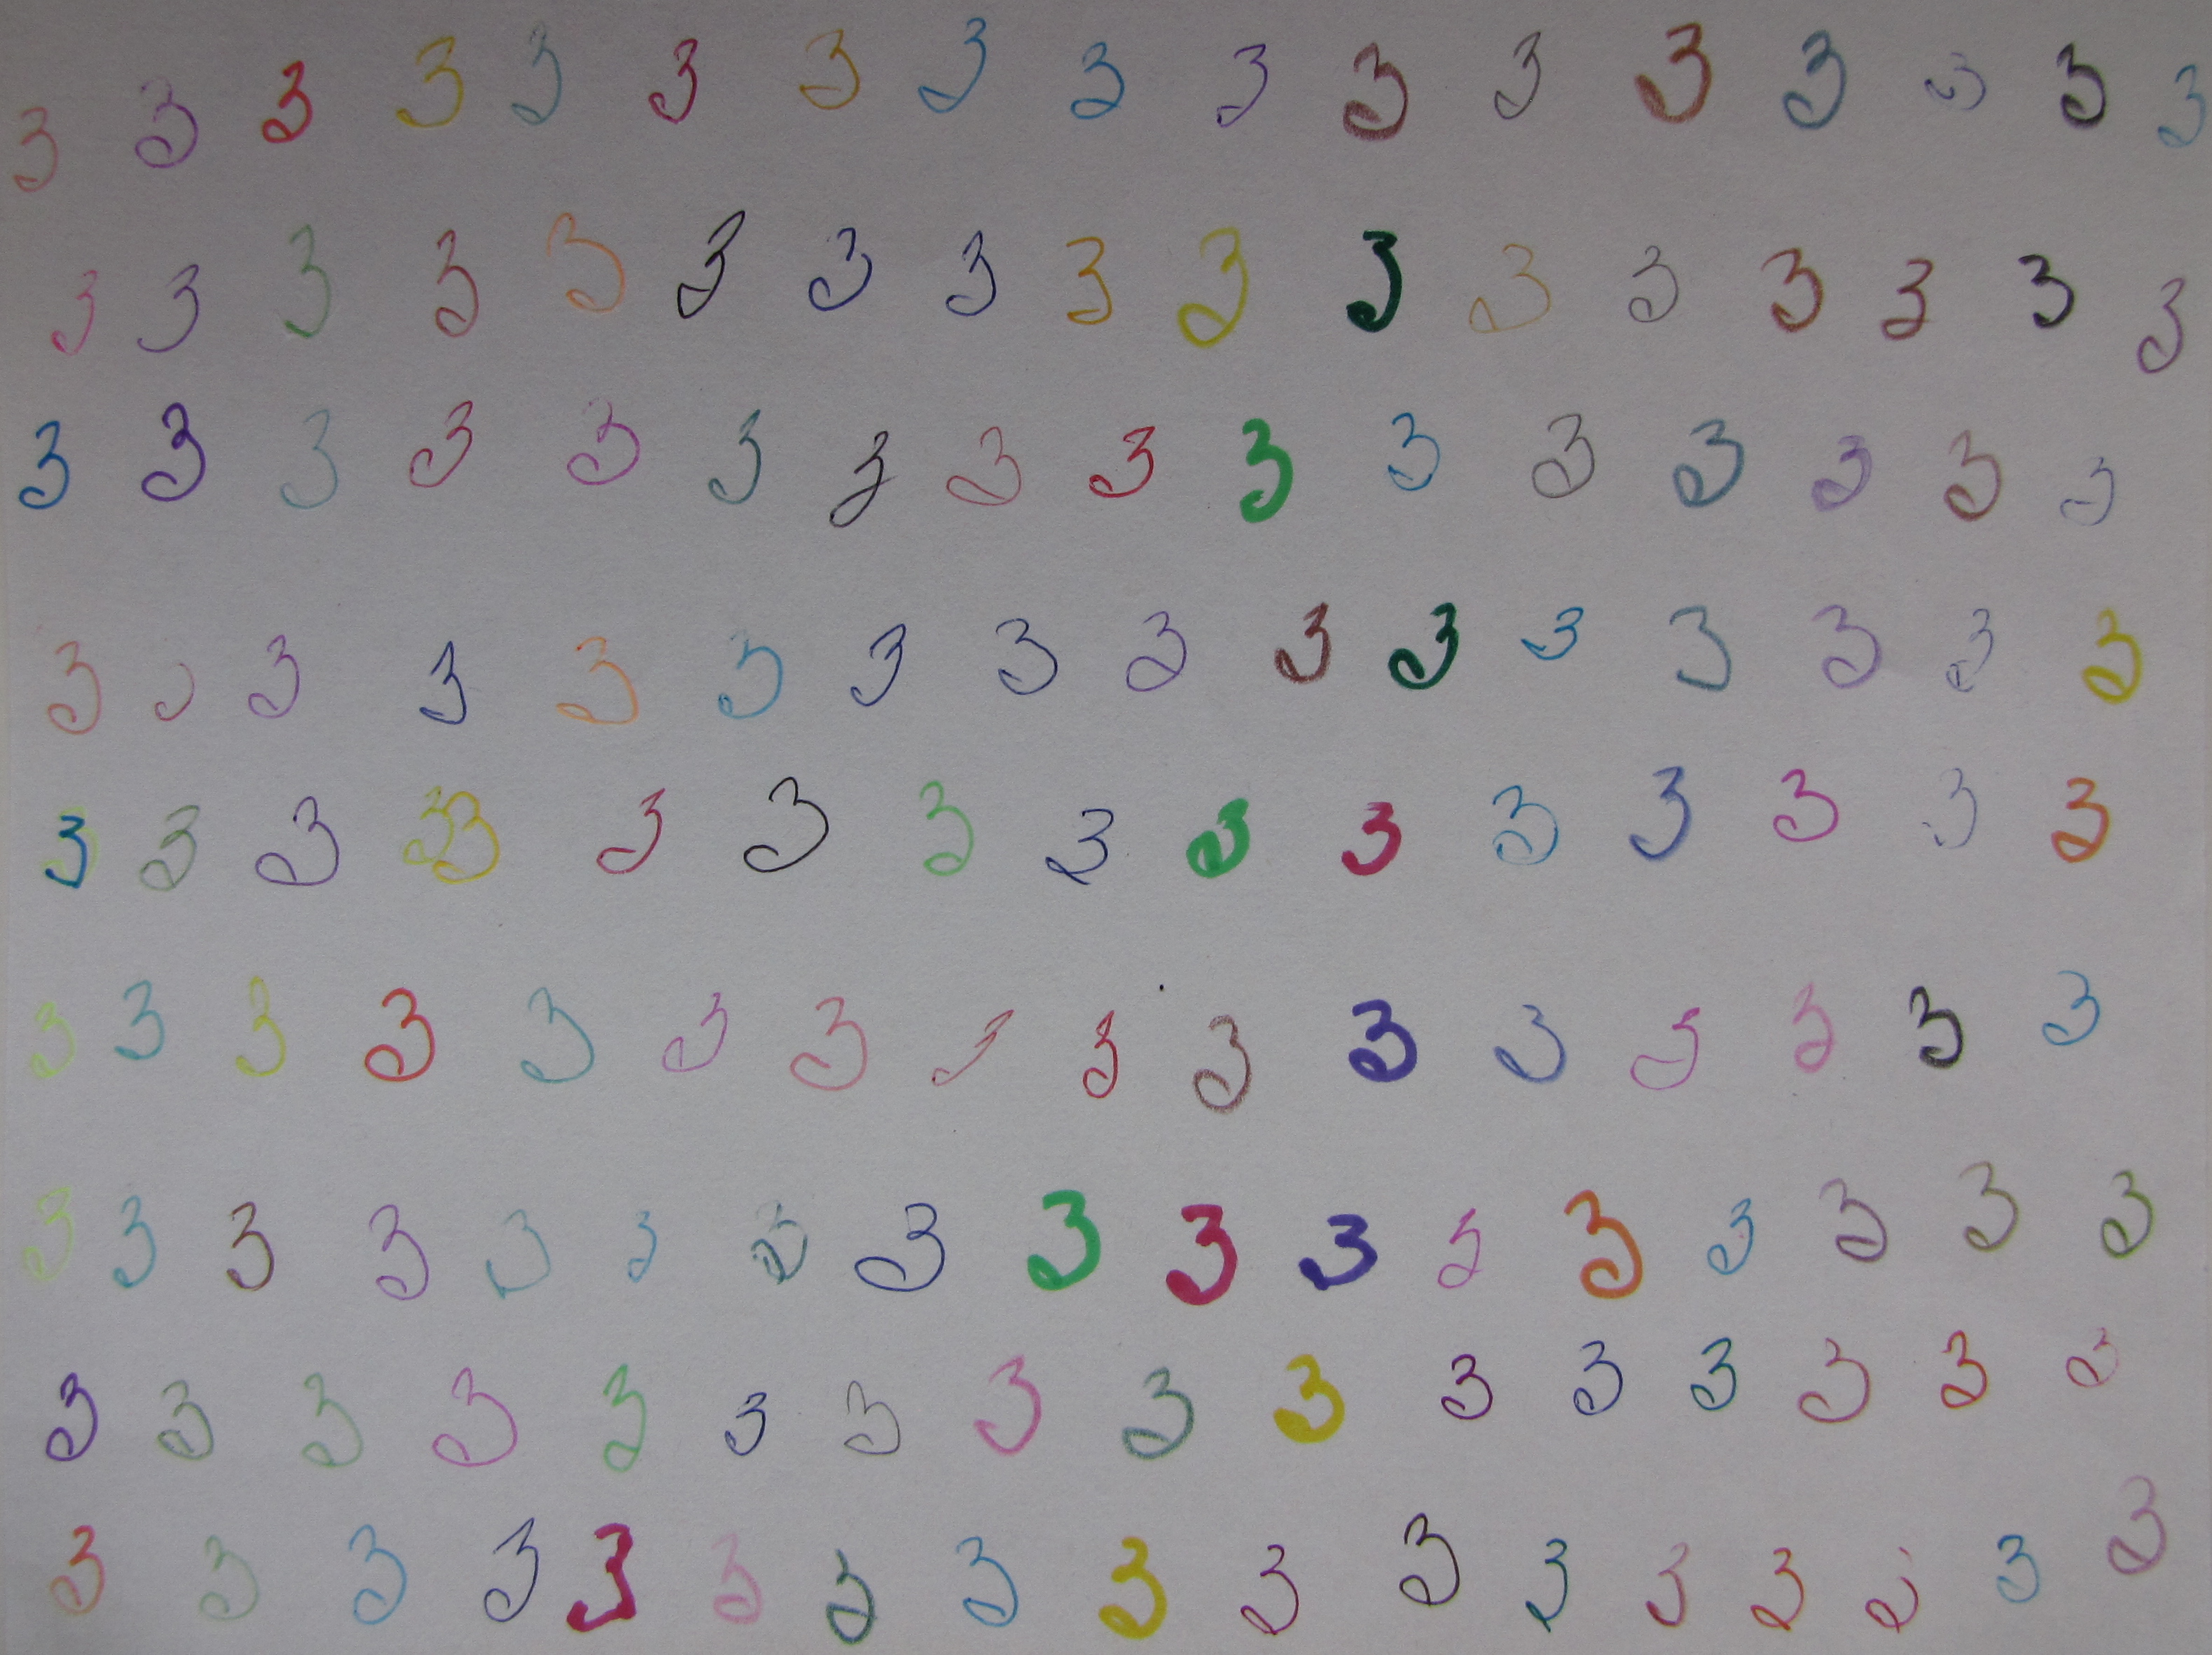 3 3 3 3 3 3 3 3 3 3 3 3 3 3 3 3 3
3 3 3 3 3 3 3 3 3 3 3 3 3 3 3 3 3
3 3 3 3 3 3 3 3 3 3 3 3 3 3 3 3
3 3 3 3 3 3 3 3 3 3 3 3 3 3 3 3
3 3 3 3 3 3 3 3 3 3 3 3 3 3 3 3
3 3 3 3 3 3 3 3 3 3 3 3 3 3 3 3
3 3 3 3 3 3 3 3 3 3 3 3 3 3 3 3 3
3 3 3 3 3 3 3 3 3 3 3 3 3 3 3 3
3 3 3 3 3 3 3 3 3 3 3 3 3 3 3 3 3